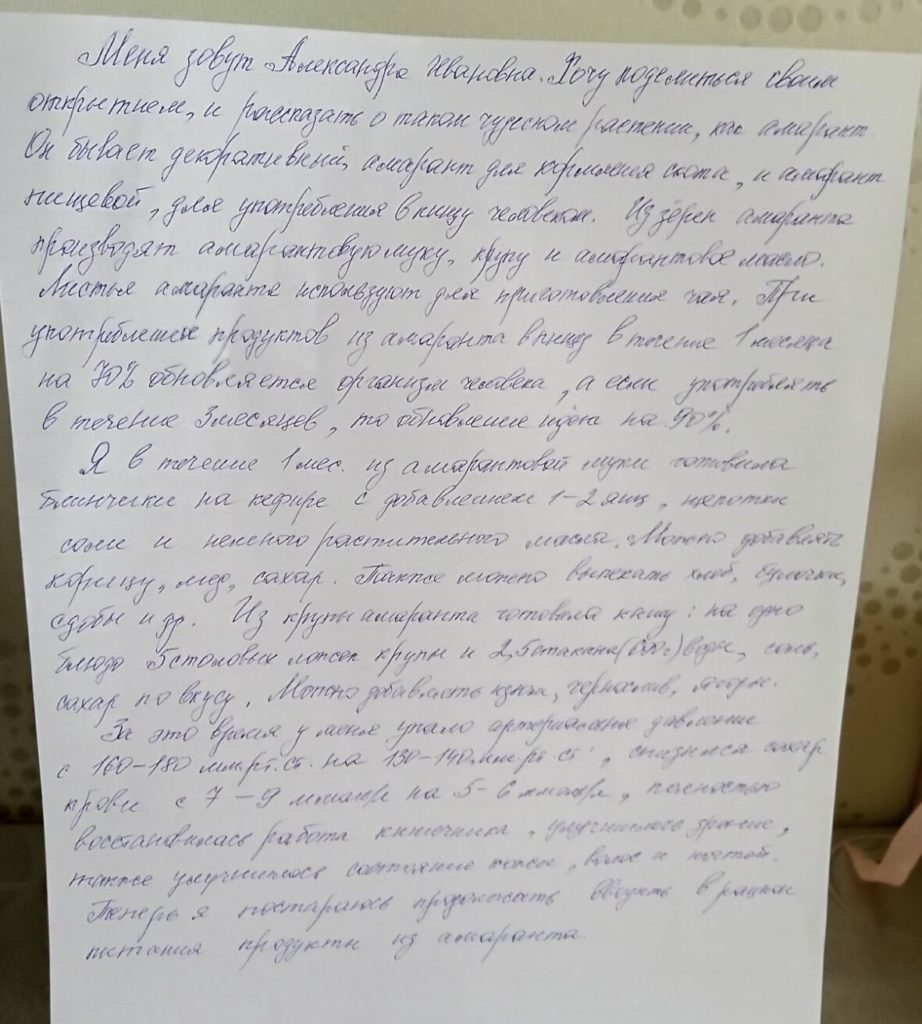 Меня зовут Александра Ивановна. Хочу поделиться своим
открытием, и рассказать о таком чудесном растении, как амарант.
Он бывает декоративный, амарант для кормления скота, и амарант
пищевой, для употребления в пищу человеком. Из зёрен амаранта
производят амарантовую муку, крупу и амарантовое масло.
Листья амаранта используют для приготовления чая. При
употреблении продуктов из амаранта в пищу в течение 1 месяца
на 70% обновляется организм человека, а если употреблять
в течение 3 месяцев, то обновление идёт на 90%.
Я в течение 1 мес. из амарантовой муки готовила
блинчики на кефире с добавлением 1-2 яиц, щепотки
соли и немного растительного масла. Можно добавлять
корицу, мед, сахар. Также можно выпекать хлеб, булочки,
сдобы и др. Из крупы амаранта готовила кашу: на одно
блюдо 5 столовых ложек крупы и 2,5 стакана (600г) воды, соль,
сахар по вкусу. Можно добавлять изюм, чернослив, ягоды.
За это время у меня упало артериальное давление
с 160-180 мм.рт.ст. на 130-140 мм рт ст, снизился сахар
крови с 7-9 ммоль на 5-6 ммоль, полностью
восстановилась работа кишечника, улучшилось зрение,
также улучшилось состояние кожи, волос и ногтей.
Теперь я постараюсь продолжать вводить в рацион
питания продукты из амаранта.